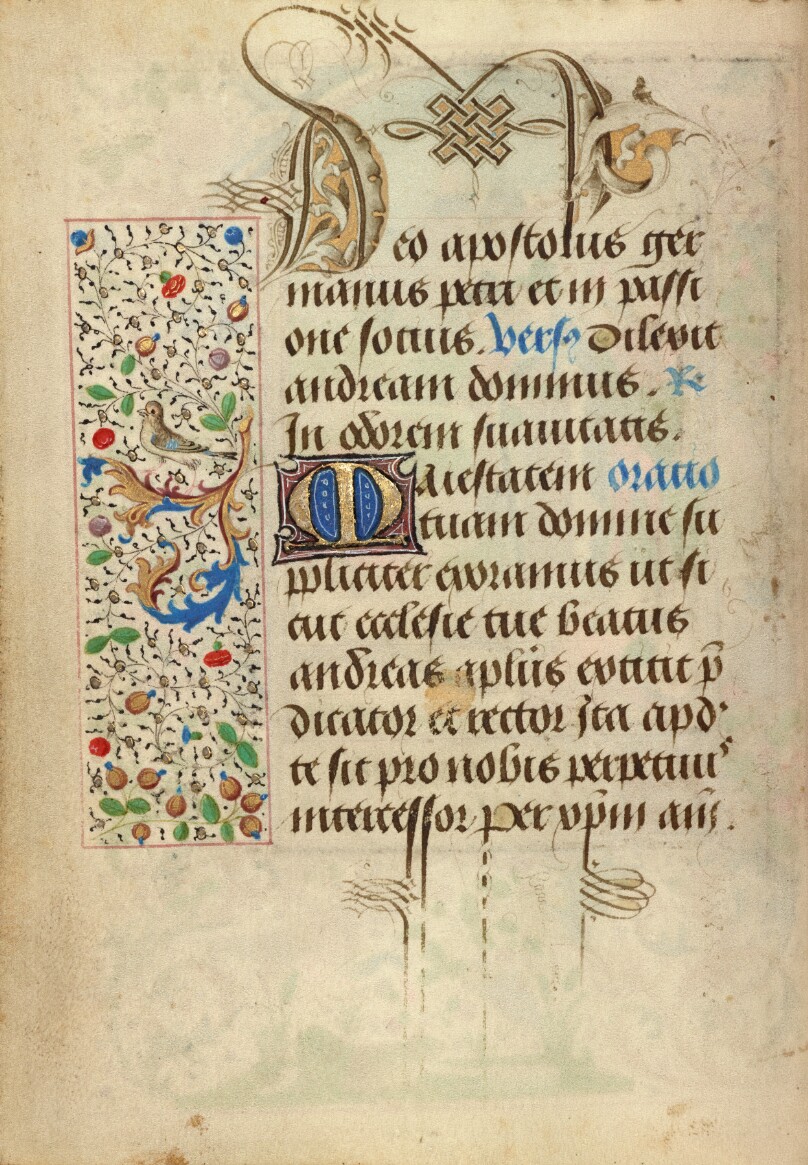 Deo apostolus ger
manus petri et in passi
one socius. Versꝯ Dilexit
andream dominus. R
In odorem suauitatis.
Maiestatem oratio
tuam domine su
ppliciter exoramus ut si
cut ecclesie tue beatus
andreas aplūs extitit p̄
dicator et rector Ita apd'
te sit pro nobis perpetuus
intercessor Per xp̄m am̄.